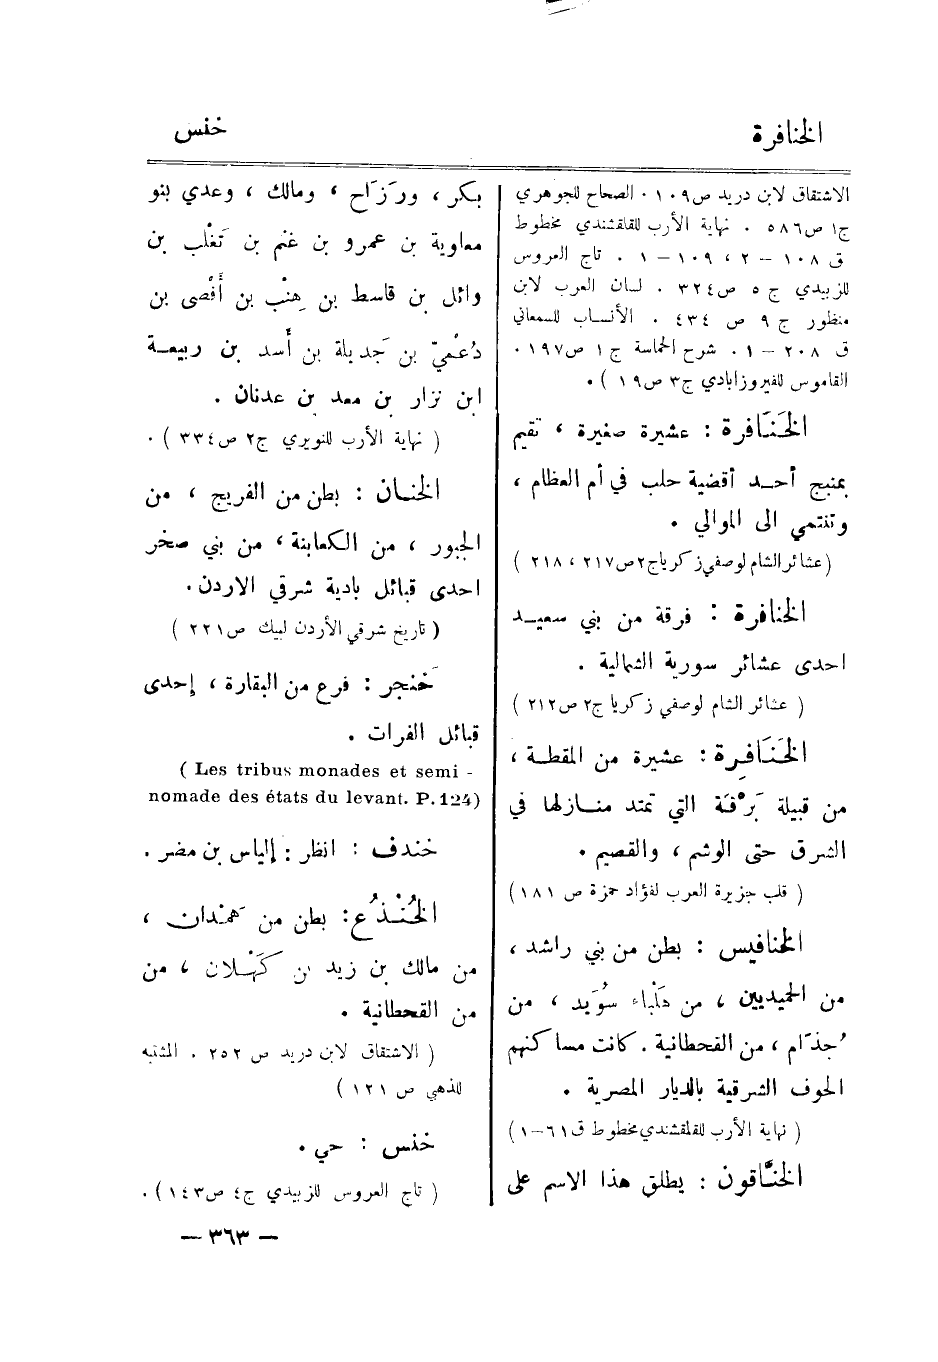 الخنافرة
خنس
الاشتقاق لابن دريد ص١٠٩ . الصحاح للجوهري
ج١ ص٥٨٦ . نهاية الأرب للقلقشندي مخطوط
ق ١٠٨ – ٢ ، ١٠٩ – ١ . تاج العروس
للزبيدي ج ٥ ص ٣٢٤ . لسان العرب لابن
منظور ج ٩ ص ٤٣٤ . الأنساب للسمعاني
ق ٢٠٨ – ١ . شرح الحماسة ج ١ ص١٩٧ .
القاموس للفيروزابادي ج٣ ص١٩ ) .
الخَنَافرة : عشيرة صغيرة ، تقيم
بمنبج أحد أقضية حلب في أم العظام ،
وتنتمي الى الموالي .
( عشائر الشام لوصفي زكريا ج٢ ص٢١٧ ، ٢١٨ )
الخنافرة : فرقة من بني سعيد
احدى عشائر سورية الشمالية .
( عشائر الشام لوصفي زكريا ج٢ ص٢١٢ )
الخَنَافِرة : عشيرة من المقطة ،
من قبيلة بَرْقَة التي تمتد منازلها في
الشرق حتى الوشم ، والقصيم .
( قلب جزيرة العرب لفؤاد حمزة ص ١٨١ )
الخنافيس : بطن من بني راشد ،
من الحميديين ، من هَلْباء سُوَيد ، من
ُجذَام ، من القحطانية . كانت مساكنهم
الحوف الشرقية بالديار المصرية .
( نهاية الأرب للقلقشندي مخطوط ق ٦١–١ )
الخنَّاقون : يطلق هذا الاسم على
بكر ، ورَزَاح ، ومالك ، وعدي بنو
معاوية بن عمرو بن غنم بن تَغْلب بن
وائل بن قاسط بن هِنْب بن أَفْصى بن
دُعْمِيّ بن جَديلة بن أَسد بن ربيعة
ابن نزار بن معد بن عدنان .
( نهاية الأرب للنويري ج٢ ص٣٣٤ ) .
الخنان : بطن من الفريج ، من
الجبور ، من الكعابنة ، من بني صخر
احدى قبائل بادية شرقي الاردن .
( تاريخ شرقي الأردن لبيك ص٢٢١ )
خَنجر : فرع من البقارة ، إحدى
قبائل الفرات .
( Les tribus monades et semi -
nomade des états du levant. P. 124)
خندف : انظر : إلياس بن مضر .
الخُنْذُع : بطن من هَمْدان ،
من مالك بن زيد بن كَهْلان ، من
من القحطانية .
( الاشتقاق لابن دريد ص ٢٥٢ . المشتبه
للذهبي ص ١٢١ )
خنس : حي .
( تاج العروس للزبيدي ج٤ ص١٤٣ ) .
— ٣٦٣ —